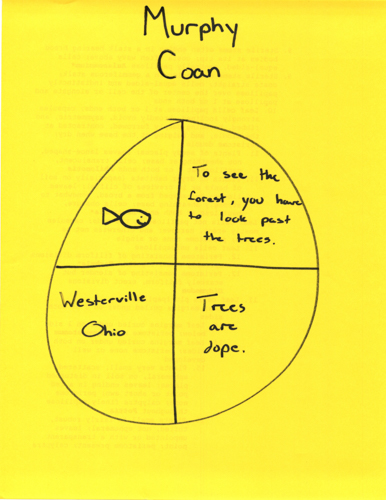 Murphy
Coan
To see the
forest, you have
to look past
the trees.
Westerville
Ohio
Trees
are
dope.